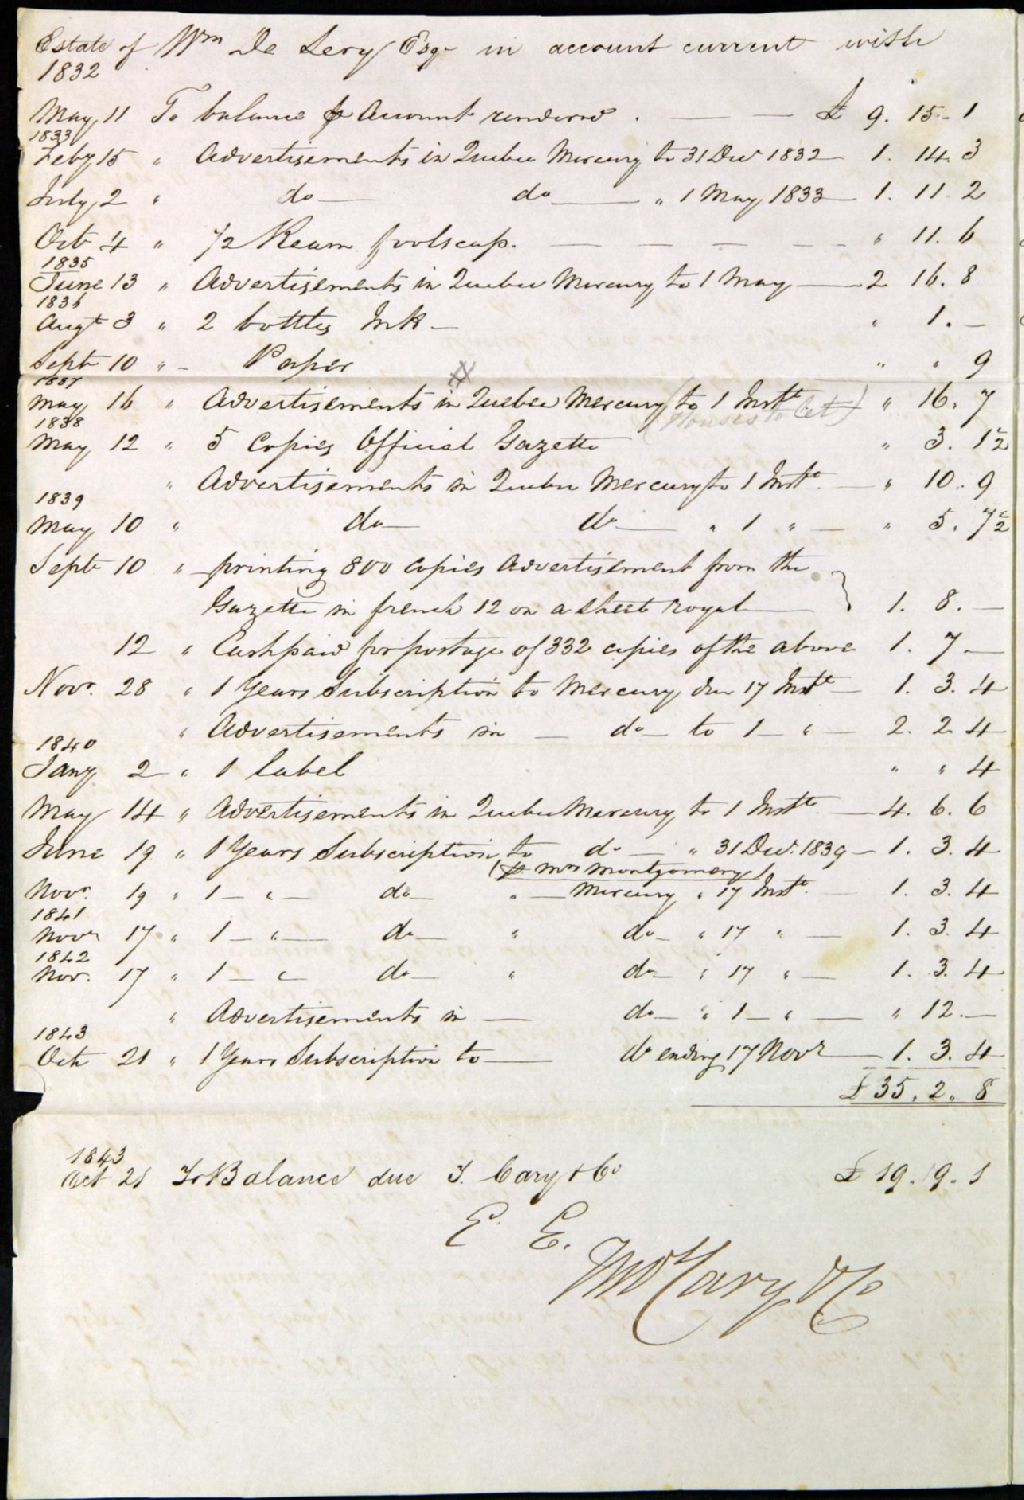 Estate of Wm De Lery Esqr in account current with
1832
May 11 To balance pr Account rendered . — — — £ 9. 15. 1
1833
Feby 15 " Advertisements in Quebec Mercury to 31 Decr 1832 — 1. 14. 3
July 2 " do — do — " 1 May 1833 — 1. 11. 2
Octr 4 " 1/2 Ream foolscap. — — — — — " 11. 6
1835
June 13 " Advertisements in Quebec Mercury to 1 May — 2 16. 8
1836
Augt 3 " 2 bottles Ink — " 1. —
Sept 10 " — Paper " " 9
1837
May 16 " Advertisements in Quebec Mercury (to 1 Instt) " 16. 7
1838
May 12 " 5 Copies Official Gazette " 3. 1½
" Advertisements in Quebec Mercury to 1 Instt. — " 10. 9
1839
May 10 " do — do — " 1 " — " 5. 7½
Sept 10 " printing 800 copies Advertisement from the
Gazette in french 12 on a sheet royal — } 1. 8. —
12 " Cash paid for postage of 332 copies of the above 1. 7 —
Novr. 28 " 1 Years Subscription to Mercury due 17 Instt — 1. 3. 4
" Advertisements in — do — to 1 — " — 2. 2 4
1840
Jany 2 " 1 label " " 4
May 14 " Advertisements in Quebec Mercury to 1 Instt — 4. 6. 6
June 19 " 1 Years Subscription to do — " 31 Decr. 1839 — 1. 3. 4
(pr Mrs Montgomery)
Novr. 19 " 1 — " — do — " — Mercury " 17 Instt. — 1. 3. 4
1841
Novr 17 " 1 — " — do — " do — " 17 " — 1. 3. 4
1842
Nov. 17 " 1 — " do — " do — " 17 " — 1. 3. 4
" Advertisements in — do — " 1 — " — " 12. —
1843
Octr 21 " 1 Years Subscription to — do ending 17 Novr — 1. 3. 4
£ 35. 2. 8
1843
Oct 21 To Balance due T. Cary & Co £ 19. 19. 1
E. E.
Thos Cary & Co